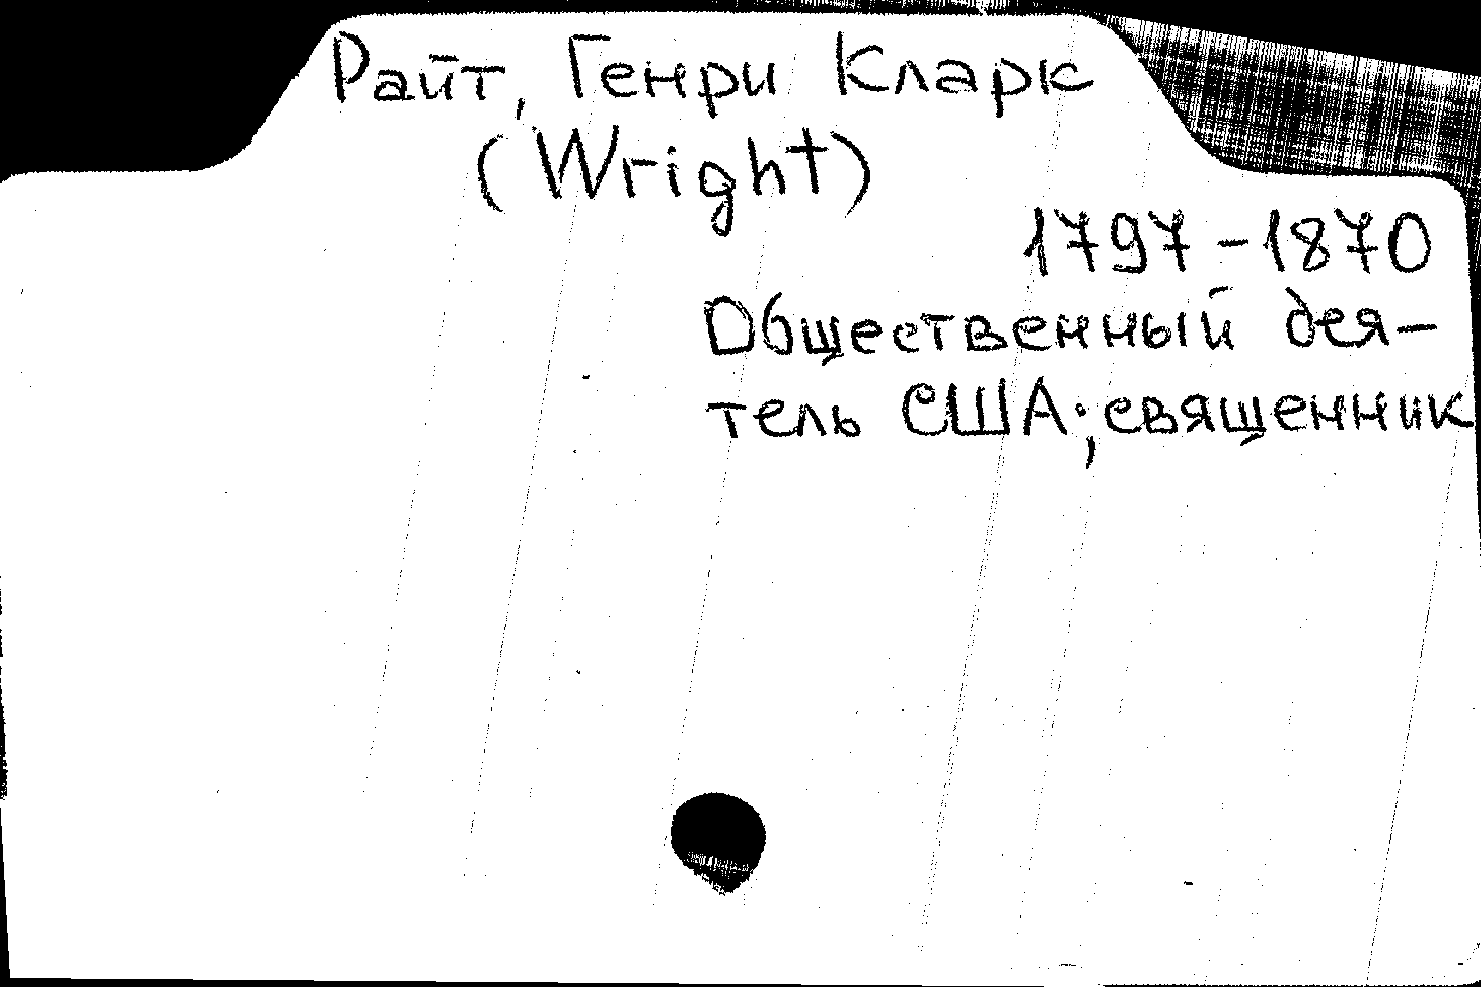 Райт, Генри Кларк
(Wright)
1797-1870
Общественный дея-
тель США; священник